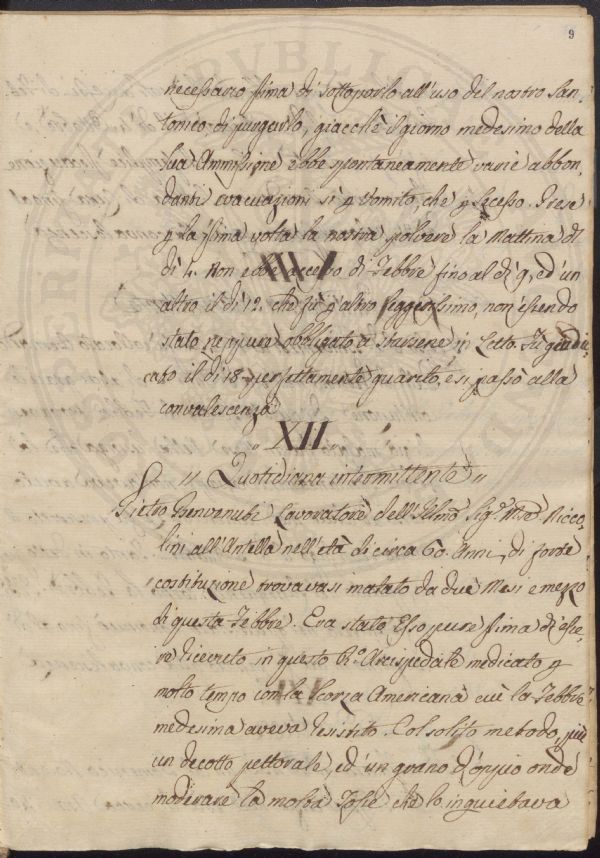 9
necessario prima di sottoporlo all'uso del nostro San-
tonico, di purgarlo, giacchè il giorno medesimo della
sua Ammissione ebbe spontaneamente varie abbon,
danti evacuazioni sì p vomito, che p secesso. Prese
p la prima volta la nostra polvere la Mattina di
dì 4. Non ebbe accesso di Febbre fino al dì 9, ed un
altro il dì 12. che fù p altro leggerissimo, non essendo
stato neppure obbligato a starsene in Letto. Fù giudi-
cato il dì 18. perfettamente guarito, e si passò alla
convalescenza
XII
" Quotidiana intermittente "
Pietro Benvenuti Lavoratore dell'Illmo Sigr Mse Ricco-
lini all'Antella nell'età di circa 60. Anni, di forte
costituzione trovavasi malato da due Mesi e mezzo
di questa Febbre. Era stato Esso pure prima di esse-
re ricevuto in questo R.o Arcispedale medicato p
molto tempo con la Scorza Americana cui la Febbre
medesima aveva resistito. Col solito metodo, più
un decotto pettorale, ed un grano d'oppio onde
moderare la molta Tosse che lo inquietava